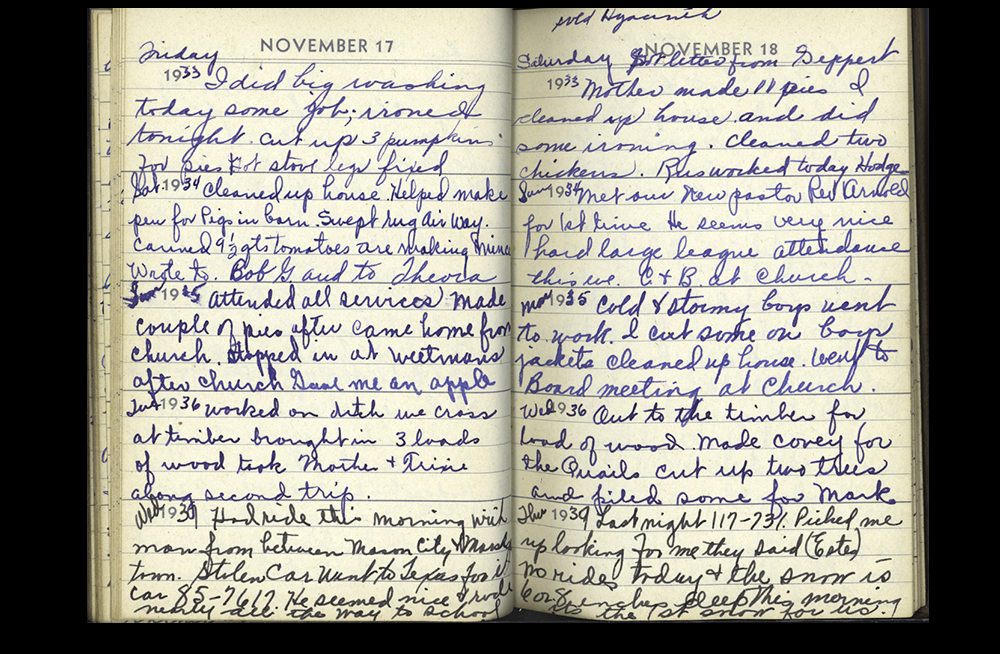 NOVEMBER 17
Friday
1933 I did big washing
today some job; ironed
tonight. cut up 3 pumpkins
for pies Got stove legs fixed
Sat 1934 Cleaned up house. Helped make
pen for Pigs in barn. Swept rug air way.
canned 9½ qts tomatoes are making mince
Wrote to. Bob G and to Theora
Sun 1935 attended all services made
couple of pies after came home from
church. Stopped in at Weetmans
after church Gave me an apple
Tue 1936 worked on ditch we cross
at timber brought in 3 loads
of wood took Mother + Trixie
along second trip.
Wed 1939 Had ride this morning with
man from between Mason City & Marshall
town. Stolen Car Want to Texas for it
car 85-7617. He seemed nice & rode
nearly all the way to school
sold Hyacinth
NOVEMBER 18
Saturday Got letter from Geppert
1933 Mother made 11 pies I
cleaned up house and did
some ironing. Cleaned two
chickens. Rus worked today Hodge
Sun 1934 Met our New pastor Rev Arnold
for 1st time He seems very nice
had large league attendance
this eve. C & B. at Church -
Mon 1935 Cold & Stormy boys went
to work. I cut some on boys
jackets cleaned up house. Went to
Board meeting at Church.
Wed 1936 Out to the timber for
load of wood. Made covey for
the Quails cut up two trees
and piled some for Mark
Thur 1939 Last night 117-731. Picked me
up looking for me they said (Estes)
no rides today & the snow is
6 or 8 inches deep this morning
Its the 1st snow for us.